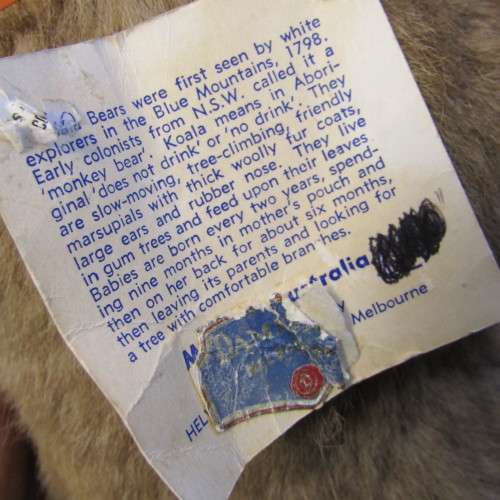 Bears were first seen by white
explorers in the Blue Mountains, 1798.
Early colonists from N.S.W. called it a
'monkey bear'. Koala means in Abori-
ginal 'does not drink' or 'no drink'. They
are slow-moving, tree-climbing, friendly
marsupials with thick woolly fur coats,
large ears and rubber nose. They live
in gum trees and feed upon their leaves.
Babies are born every two years, spend-
ing nine months in mother's pouch and
then on her back for about six months,
then leaving its parents and looking for
a tree with comfortable branches.
Melbourne